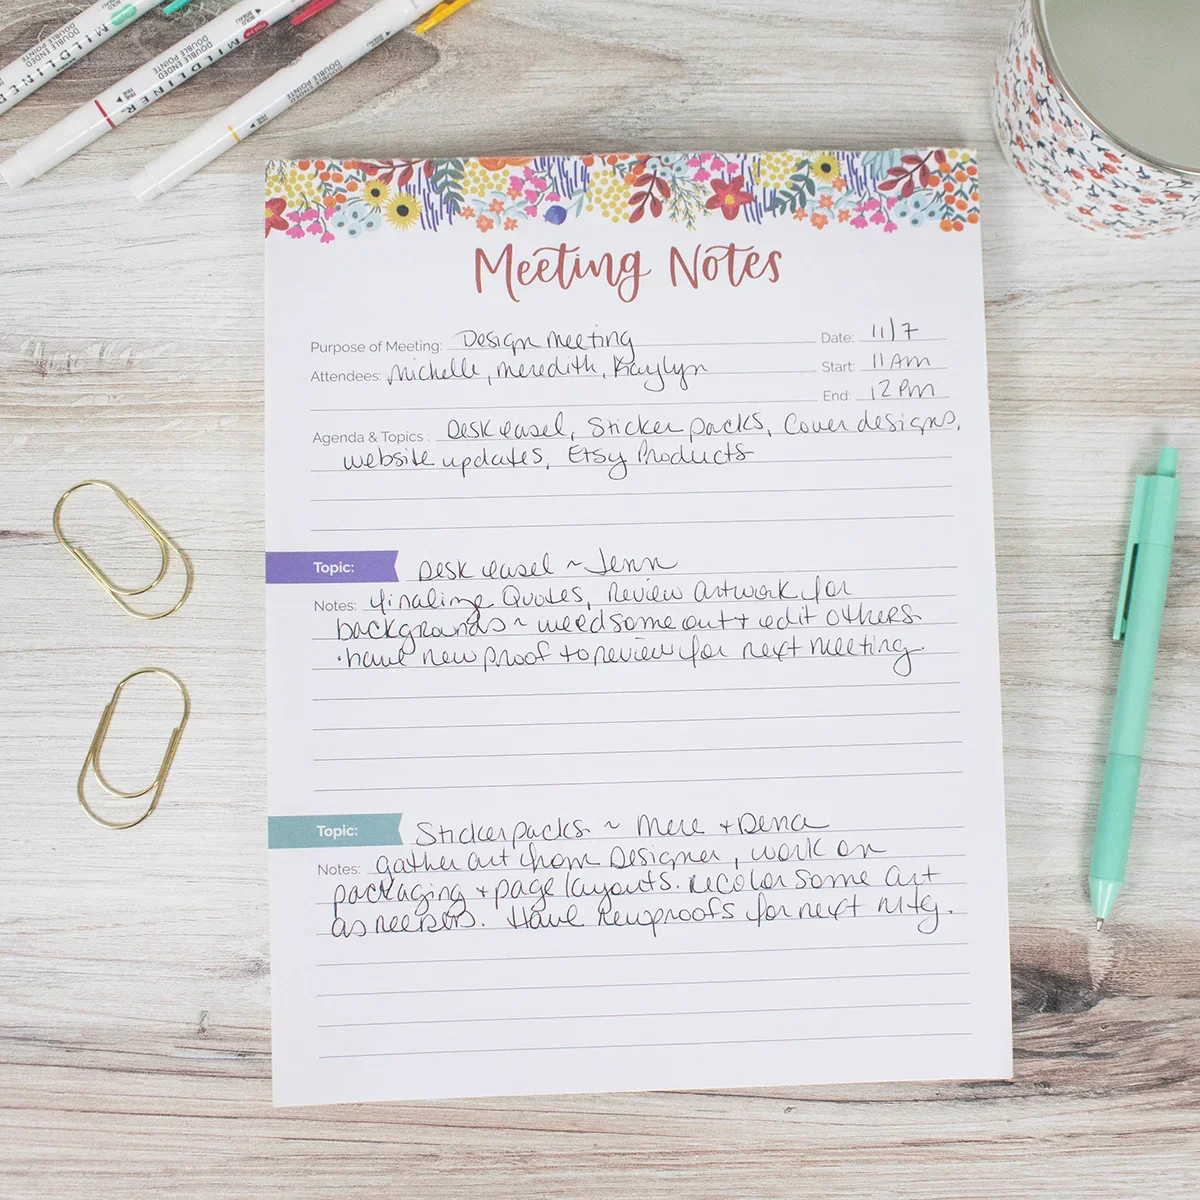 MILDLINER
DOUBLE ENDED
DOUBLE POINTE
MILDLINER
DOUBLE ENDED
DOUBLE POINTE
DOUBLE ENDED
DOUBLE POINTE
Meeting Notes
Purpose of Meeting: Design meeting Date: 11/7
Attendees: Michelle, meredith, Kaylyn Start: 11 Am
End: 12 Pm
Agenda & Topics : Desk easel, Sticker packs, Cover designs,
website updates, Etsy Products
Topic: Desk easel ~ Jenn
Notes: finalize Quotes, Review artwork for
backgrounds ~ weed some out + edit others.
• have new proof to review for next meeting.
Topic: Sticker packs ~ Mere + Dena
Notes: gather art from Designer, work on
packaging + page layouts. recolor some art
as needed. Have new proofs for next mtg.